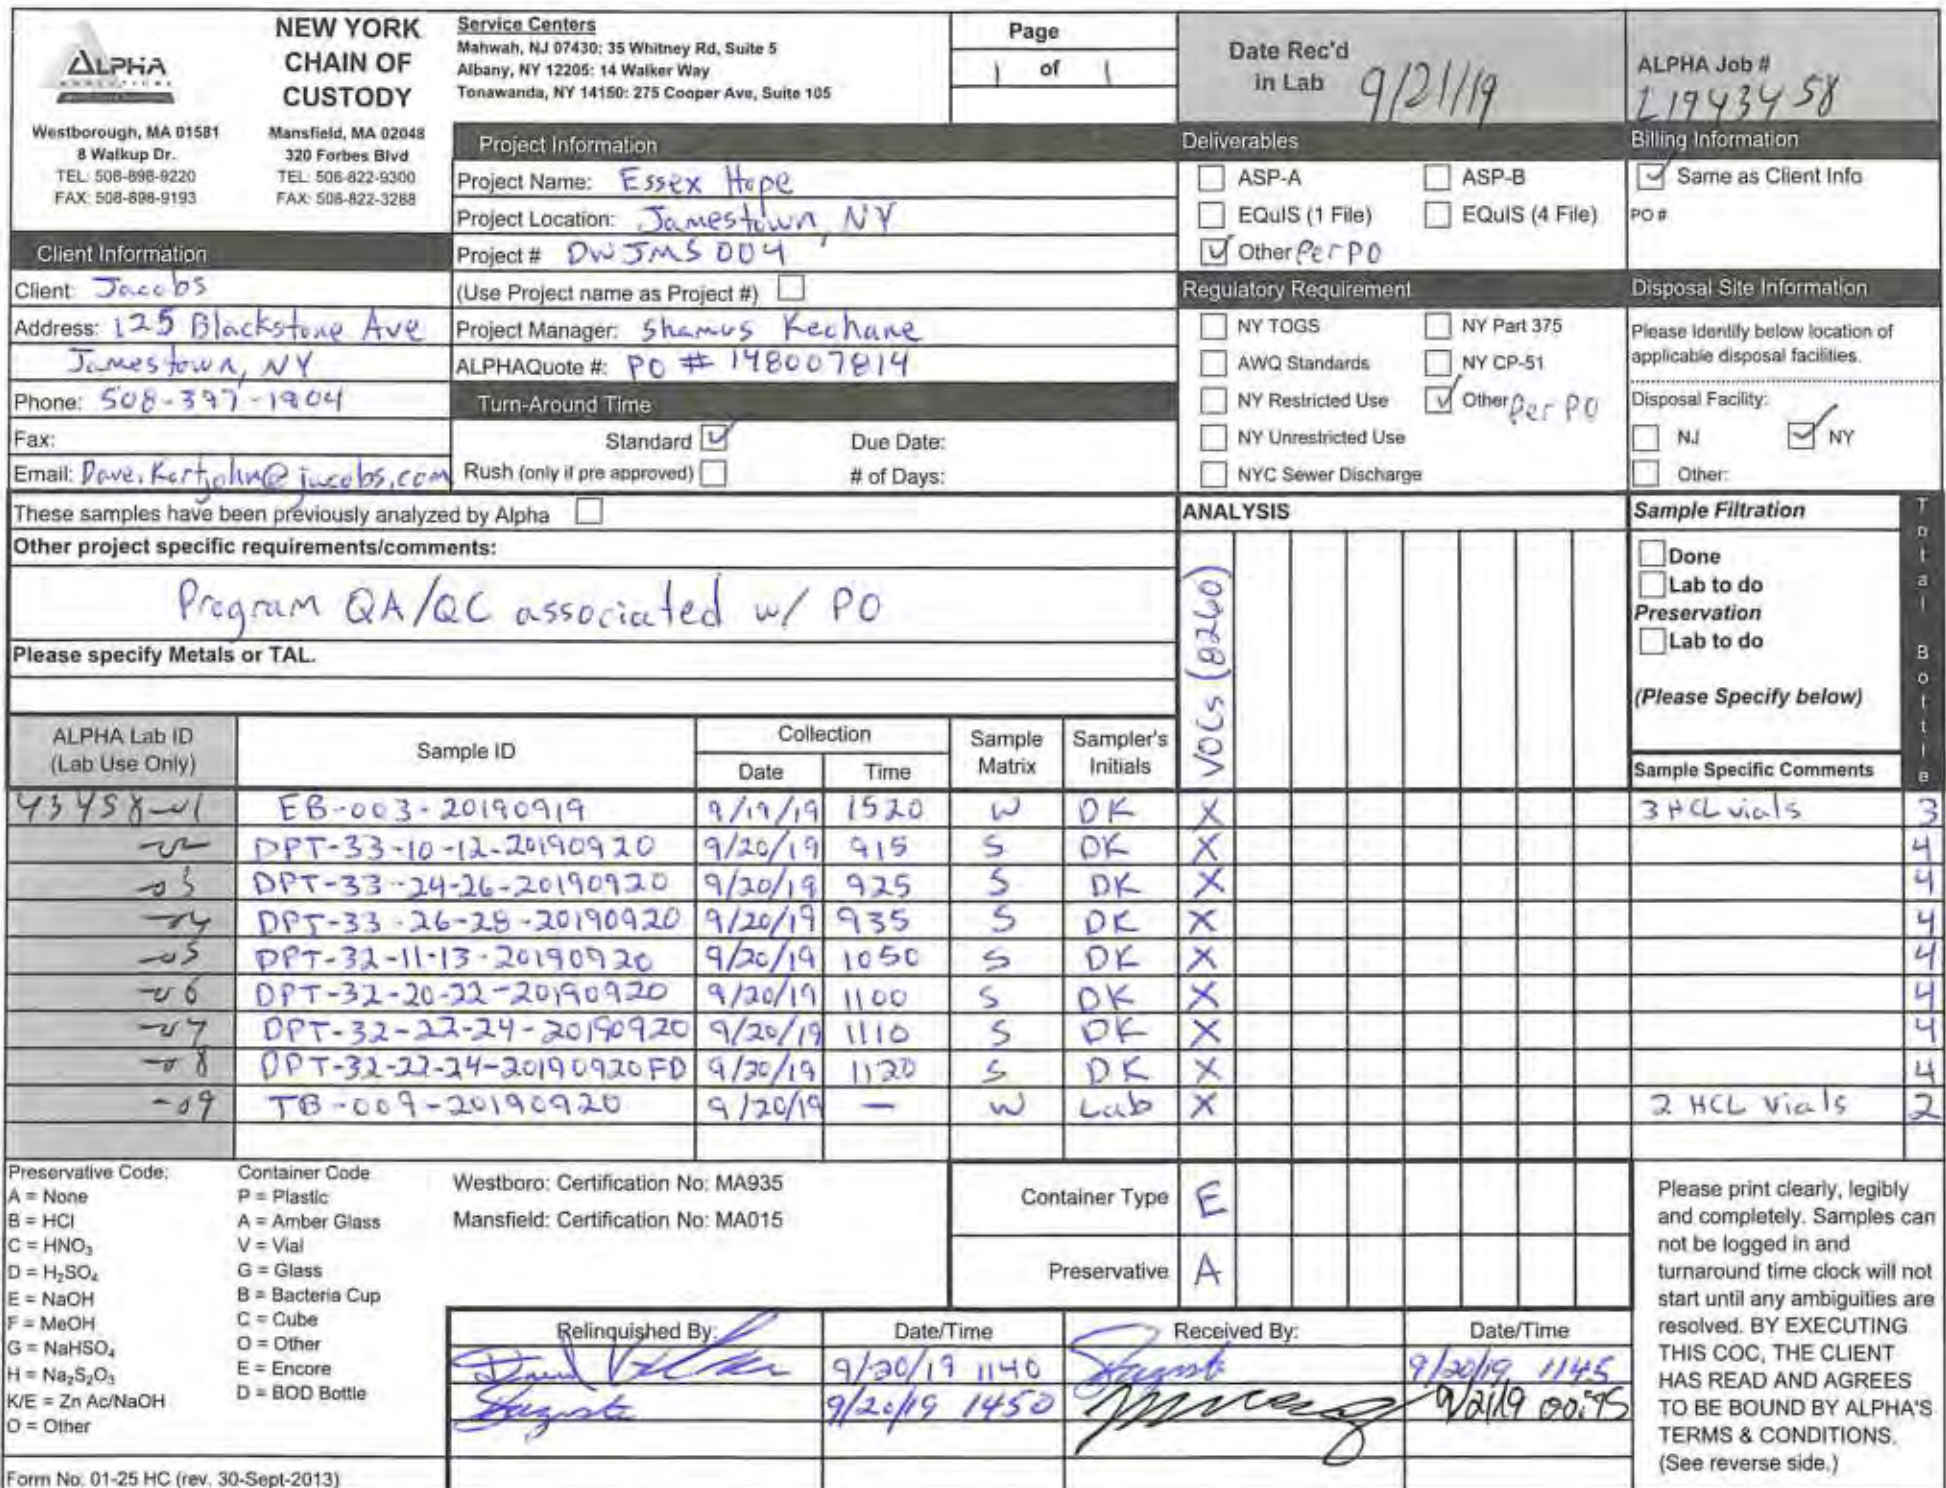 ALPHA
NEW YORK
CHAIN OF
CUSTODY
Westborough, MA 01581
8 Walkup Dr.
TEL: 508-898-9220
FAX: 508-898-9193
Mansfield, MA 02048
320 Forbes Blvd
TEL: 508-822-9300
FAX: 508-822-3288
Service Centers
Mahwah, NJ 07430: 35 Whitney Rd, Suite 5
Albany, NY 12205: 14 Walker Way
Tonawanda, NY 14150: 275 Cooper Ave, Suite 105
Page
1 of 1
Date Rec'd
in Lab 9/21/19
ALPHA Job #
L1943458
Client Information
Client: Jacobs
Address: 125 Blackstone Ave
Jamestown, NY
Phone: 508-397-1904
Fax:
Email: Dave.Kortjohn@jacobs.com
Project Information
Project Name: Essex Hope
Project Location: Jamestown, NY
Project # DWJMS004
(Use Project name as Project #)
Project Manager: Shamus Keohane
ALPHAQuote #: PO # 148007814
Turn-Around Time
Standard Due Date:
Rush (only if pre approved) # of Days:
Deliverables
ASP-A ASP-B
EQuIS (1 File) EQuIS (4 File)
Other Per PO
Regulatory Requirement
NY TOGS NY Part 375
AWQ Standards NY CP-51
NY Restricted Use Other Per PO
NY Unrestricted Use
NYC Sewer Discharge
Billing Information
Same as Client Info
PO #
Disposal Site Information
Please identify below location of
applicable disposal facilities.
Disposal Facility:
NJ NY
Other:
These samples have been previously analyzed by Alpha
Other project specific requirements/comments:
Program QA/QC associated w/ PO
Please specify Metals or TAL.
ANALYSIS
VOCs (8260)
Sample Filtration
Done
Lab to do
Preservation
Lab to do
(Please Specify below)
Total Bottle
ALPHA Lab ID
(Lab Use Only)
Sample ID
Collection
Date Time
Sample
Matrix
Sampler's
Initials
Sample Specific Comments
43458-01 EB-003-20190919 9/19/19 1520 W DK X 3 HCL vials 3
-02 DPT-33-10-12-20190920 9/20/19 915 S DK X 4
-03 DPT-33-24-26-20190920 9/20/19 925 S DK X 4
-04 DPT-33-26-28-20190920 9/20/19 935 S DK X 4
-05 DPT-32-11-13-20190920 9/20/19 1050 S DK X 4
-06 DPT-32-20-22-20190920 9/20/19 1100 S DK X 4
-07 DPT-32-22-24-20190920 9/20/19 1110 S DK X 4
-08 DPT-32-22-24-20190920FD 9/20/19 1120 S DK X 4
-09 TB-009-20190920 9/20/19 — W Lab X 2 HCL Vials 2
Preservative Code:
A = None
B = HCl
C = HNO₃
D = H₂SO₄
E = NaOH
F = MeOH
G = NaHSO₄
H = Na₂S₂O₃
K/E = Zn Ac/NaOH
O = Other
Container Code
P = Plastic
A = Amber Glass
V = Vial
G = Glass
B = Bacteria Cup
C = Cube
O = Other
E = Encore
D = BOD Bottle
Westboro: Certification No: MA935
Mansfield: Certification No: MA015
Container Type E
Preservative A
Relinquished By: Date/Time Received By: Date/Time
9/20/19 1140 9/20/19 1145
9/20/19 1450 9/21/19 00:45
Please print clearly, legibly
and completely. Samples can
not be logged in and
turnaround time clock will not
start until any ambiguities are
resolved. BY EXECUTING
THIS COC, THE CLIENT
HAS READ AND AGREES
TO BE BOUND BY ALPHA'S
TERMS & CONDITIONS.
(See reverse side.)
Form No: 01-25 HC (rev. 30-Sept-2013)